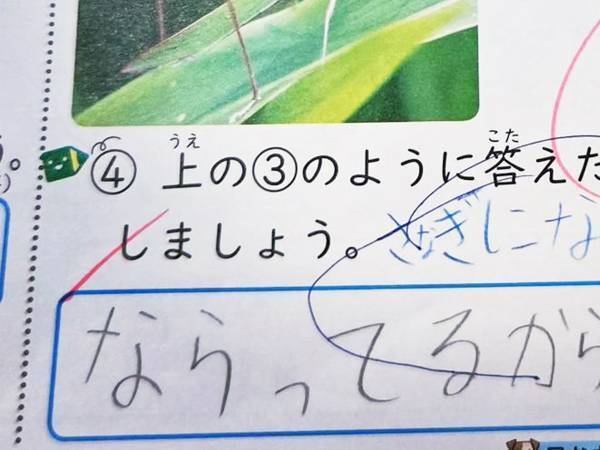 うえ こた
④ 上の③のように答えた
しましょう。
さなぎにな
ならってるから